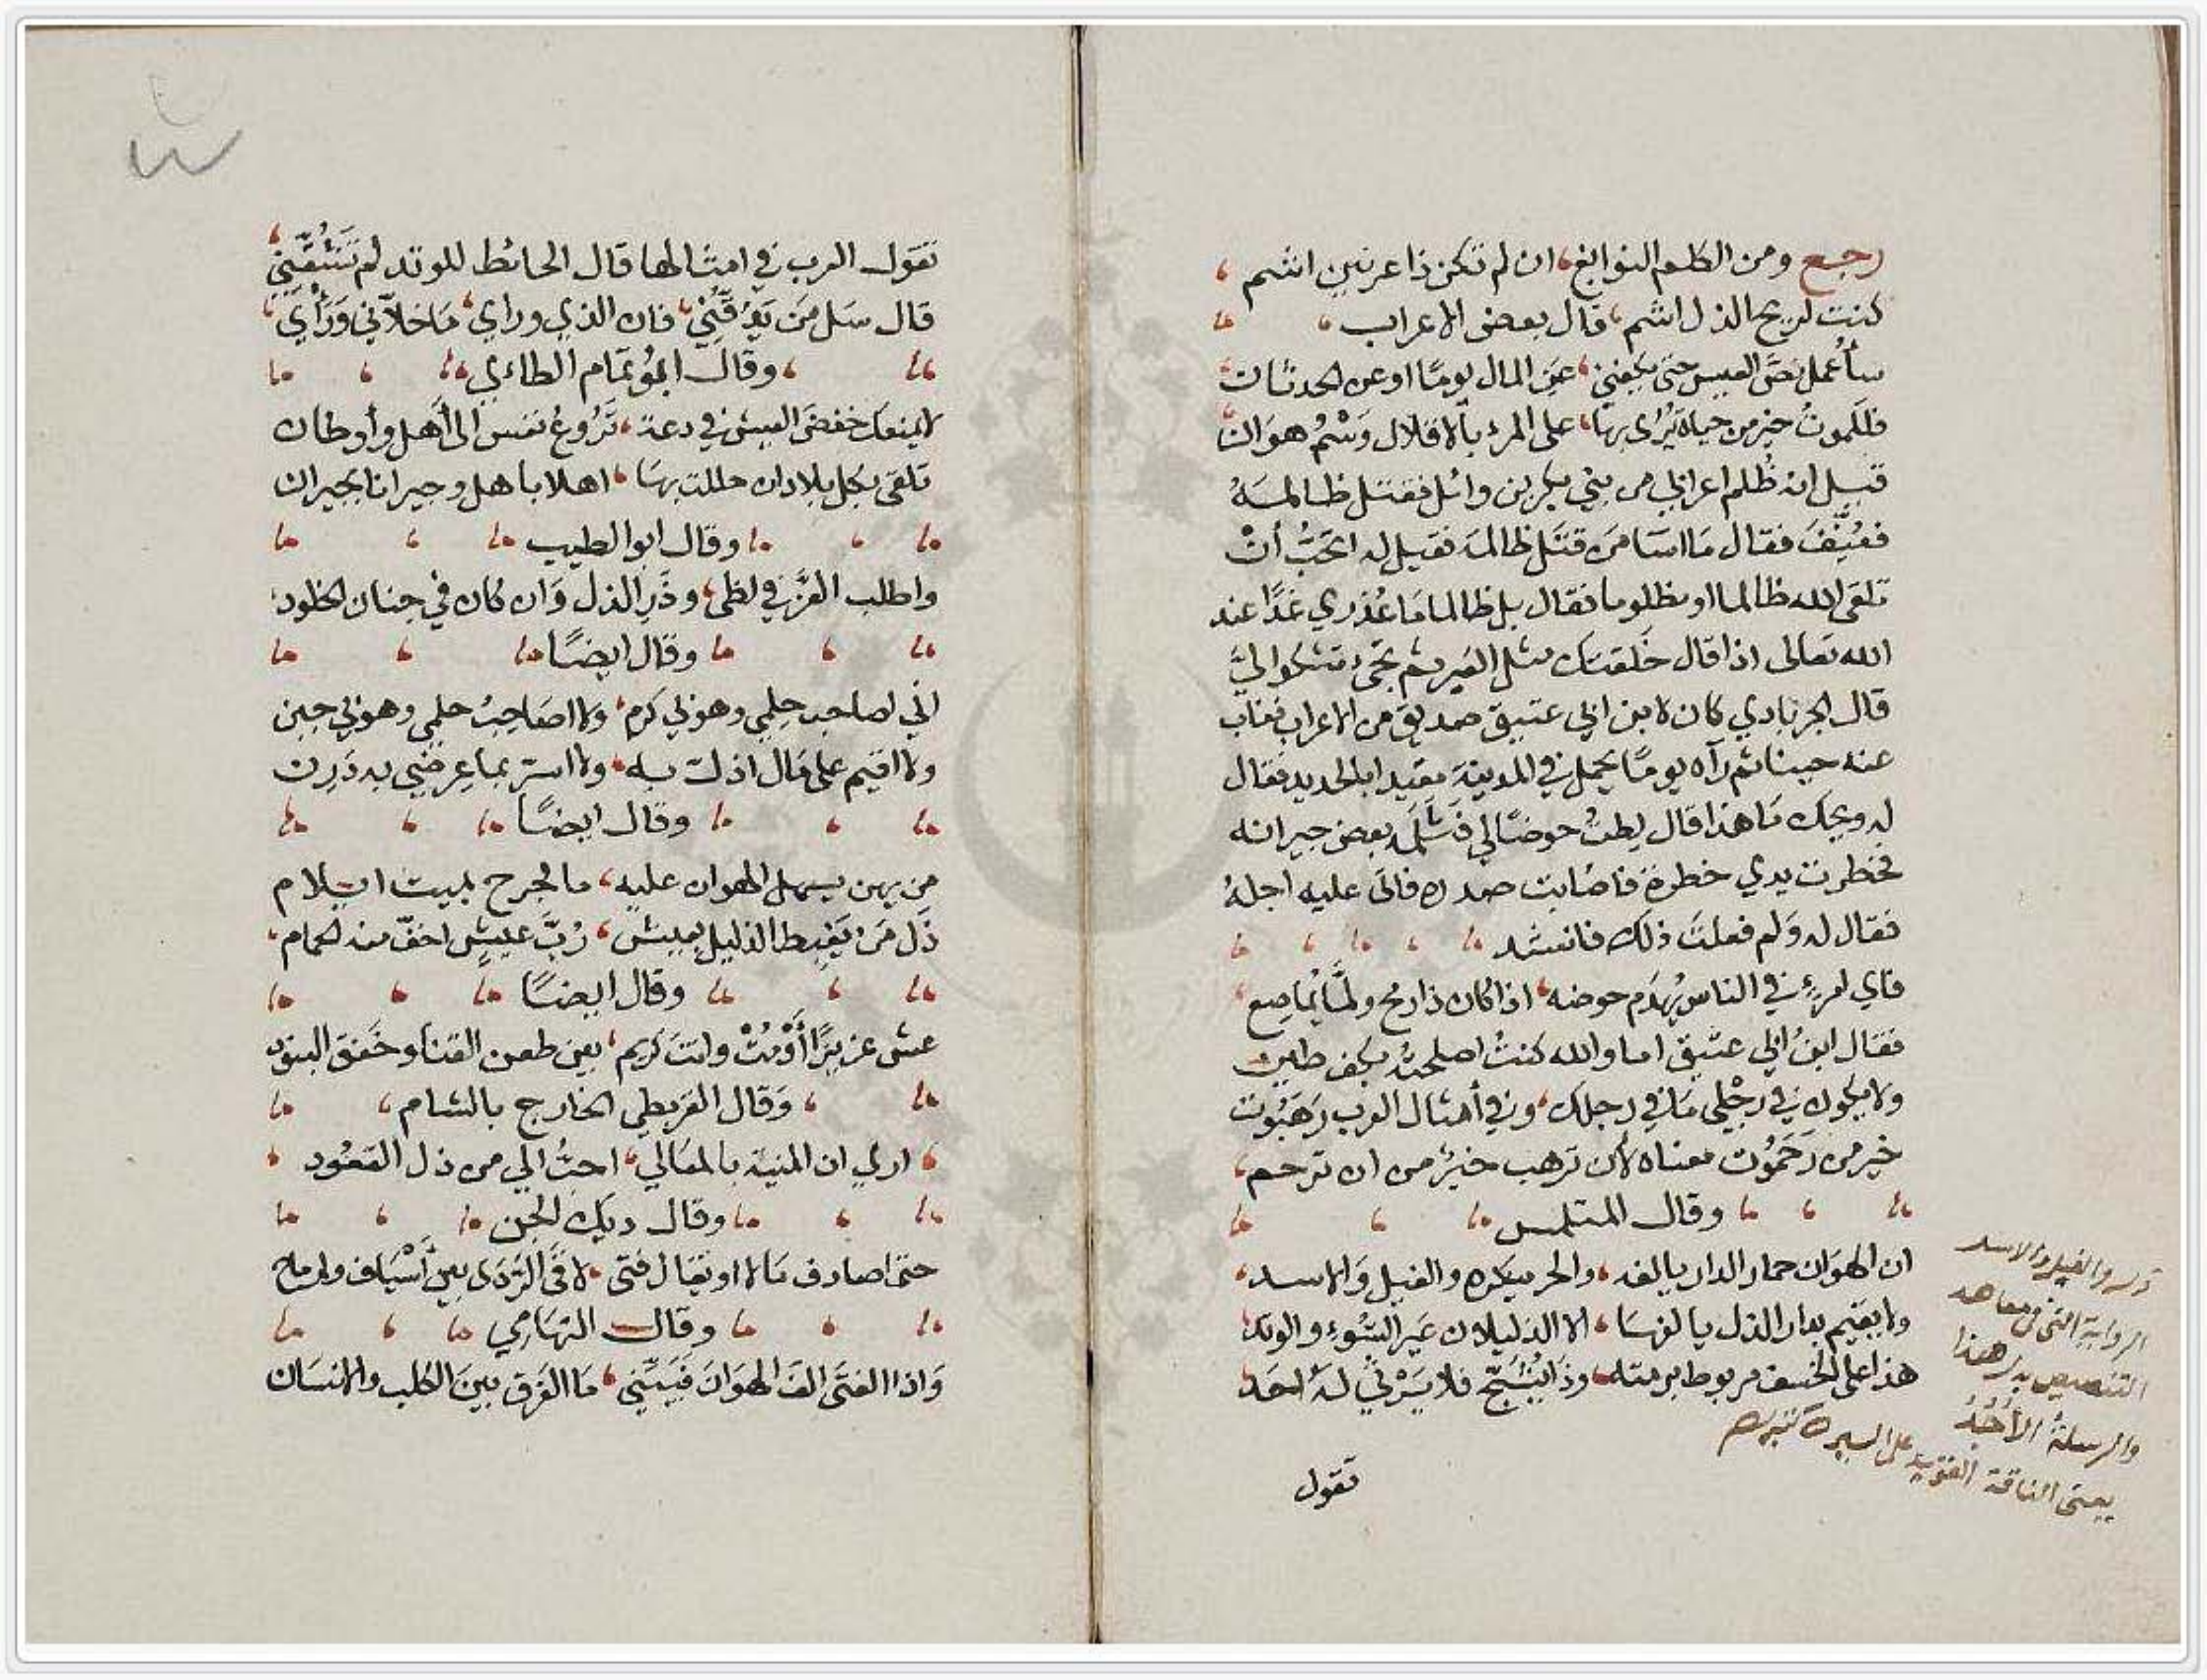 رجع ومن الكلم النوابغ، ان لم تكن ذا عرنين اشم،
كنت لريح الذل اشم، قال بعض الاعراب،
سأُعمل نصَّ العيس حتى يكفني، غنى المال يومًا او غنى الحدثان
فللموتُ خير من حياة يُرى بها، على المرء بالاقلال وَسْمُ هوَان
قيل انه ظُلم اعرابي من بني بكر بن وائل فقتل ظالمَهُ
فعُنِّفَ فقال مَا اسَا مَن قتَل ظالمَه فقيل له اتحبُّ أنْ
تلقى الله ظالما او مظلوما فقال بل ظالما مَا عُذري غدًا عند
الله تعالى اذا قال خَلقتك مثل العَير ثم تجيء تشكو اليَّ
قال الجرنادي كان لابن ابي عتيق صديق من الاعراب فغاب
عنه حينا ثم رآه يومًا يحمل في المدينة مقيدا بالحديد فقال
له ويحك مَا هذا قال لِطتُ حوضًا لي فَثَلَمَه بعض جيرانه
فخطرت يدي خطرة فاصابت صدره فاتى عليه اجلهُ
فقال له وَلم فعلتَ ذلك فانشد
فاي امرءٍ في الناس يُهدَم حوضه، اذا كان ذا رمح ولمَّا يُماصِع،
فقال ابنُ ابي عتيق اما والله كنتُ اصلحتهُ بكف طين
ولا يكون في رِجْلي مَا في رجلك، وفي أمثال العرب رَهَبُوت
خير من رَحَمُوت معناه لأن تَرهب خيرٌ من ان ترحم،
وقال المتلمس
ان الهوَان حمار الدار يالفه، والحر ينكره والفيل وَالاسد،
ولا يقيم بدار الذل يالفهَا، الا الذليلان عَير السُّوءِ والوتد
هذا على الخسف مربوط برمته، وذَا يُشَجّ فلا يَرْثي لهُ احَد
قوله والفيل والاسد
الرواية التي في معاهد
التنصيص بدل هذا
والرسلةُ الأُجُدُ
يعني الناقة القوية على السير
تقول
تقول العرب في امثالها قال الحائط للوتد لم تَشُقُّني،
قال سَل مَن يَدُقُّني، فان الذي وراي، مَا خلاَّني وَرَأْيي،
وقال ابُو تمام الطاءي
لا يمنعك خفضَ العيش في دعة، نَزُوعُ نفس الى أَهل وأوطان
تلقى بكل بلاد ان حللت بهَا، اهلا باهل وجيرانا بجيران
وقال ابو الطيب
واطلب العزَّ في لظى، وذَرِ الذل وَان كان في جنان الخلود
وقال ايضًا
اني اصاحب حِلمي وهو بي كرَم، ولا اصَاحِبُ حلمي وهو بي جبن
ولا اقيم على مَال اذلّ به، ولا الذ بما عِرضي به دَرِن
وقال ايضًا
من يهن يسهل الهوان عليه، ما لجرح بميت ايلام
ذَل مَن يَغبِط الذليل بعيش، رُبَّ عيشٍ اخفّ منه الحمام،
وقال ايضًا
عش عزيزًا أوْمُتْ وانتَ كريم، بين طعن القنا وخَفق البنود
وَقال القرمطي الخارج بالشام،
ارى ان المنية بالمعَالي، احبُّ الي من ذل القعُود،
وقال ديك الجن
حتى اصادف مَالا او يقال فتى، لاقَى الرَّدَى بين أَسْيَاف وارماح
وقال التهَامِي
وَاذا الفتَى الفَ الهوَانَ فَبَيِّني، مَا الفَرق بينَ الكلب والانسَان